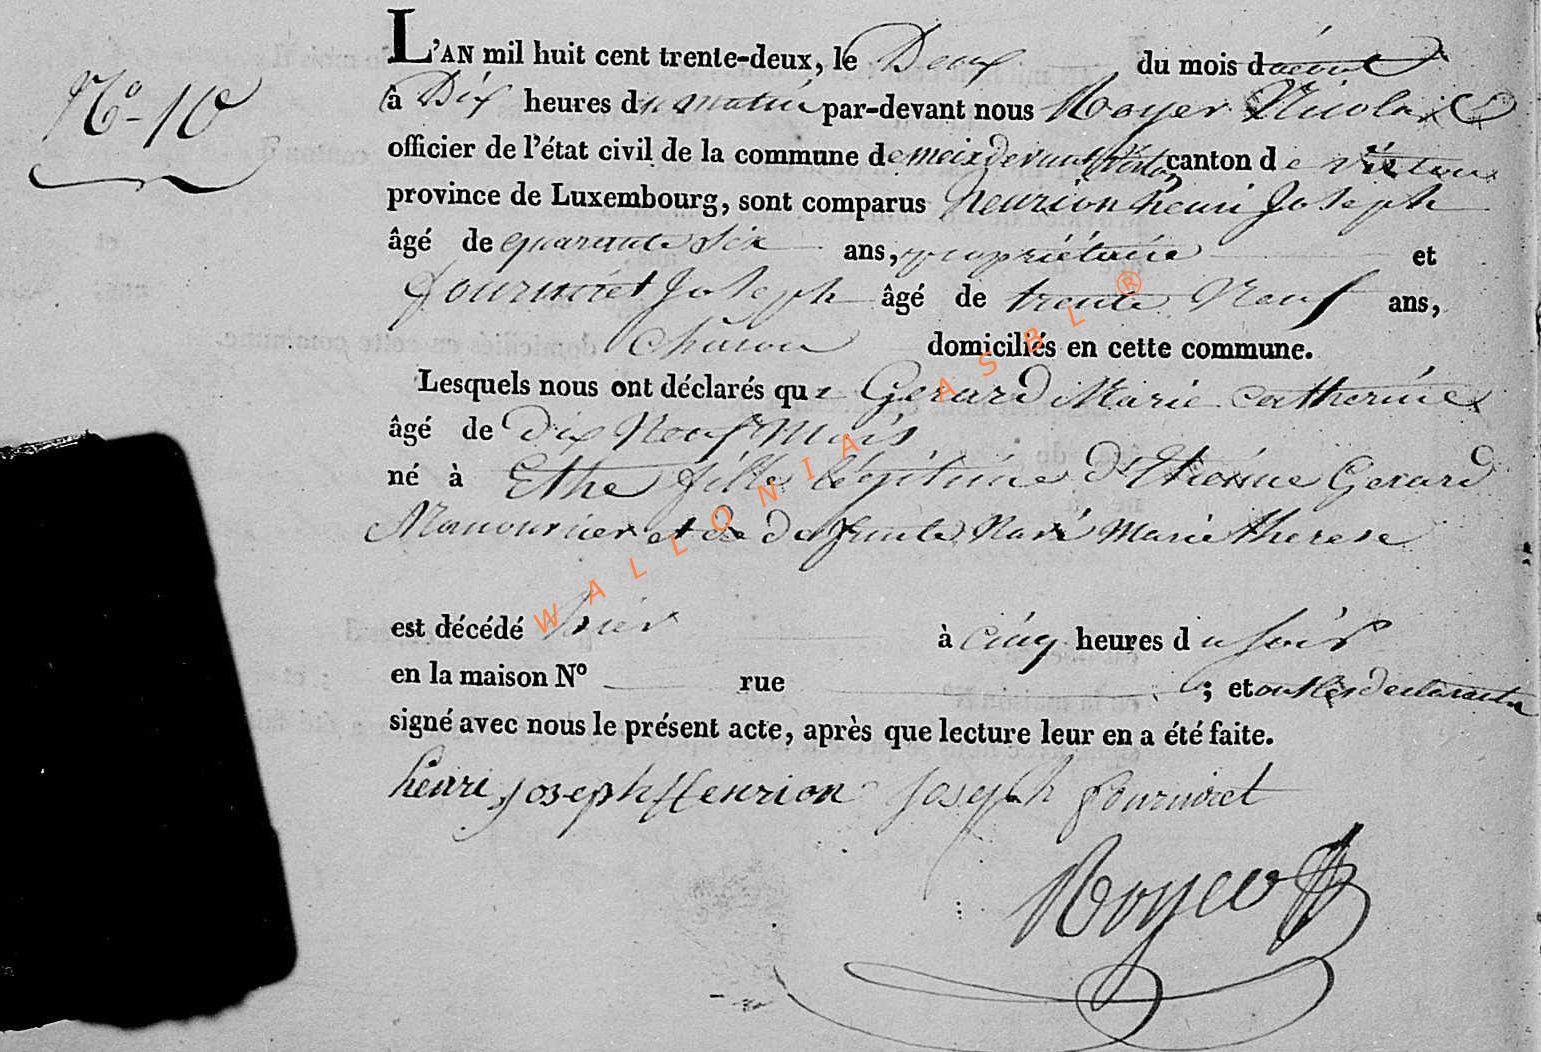 N.° 10
L'AN mil huit cent trente-deux, le Deux du mois d'aout
à Dix heures du matin par-devant nous Royer Nicolas
officier de l'état civil de la commune de meix devant Virton canton de virton
province de Luxembourg, sont comparus henrion henri Joseph
âgé de quarante six ans, propriétaire et
fournriet Joseph âgé de trente Neuf ans,
domiciliés en cette commune.
Lesquels nous ont déclarés que Gerard Marie catherine
âgé de dix Neuf Mois
né à Ethe fille légitime d'Etienne Gerard
Manouvrier et de defunte Marie therese
est décédé hier à cinq heures du soir
en la maison N° rue ; et ont les declarants
signé avec nous le présent acte, après que lecture leur en a été faite.
henri joseph Henrion joseph
Royer
WALLONIA ASBL ®